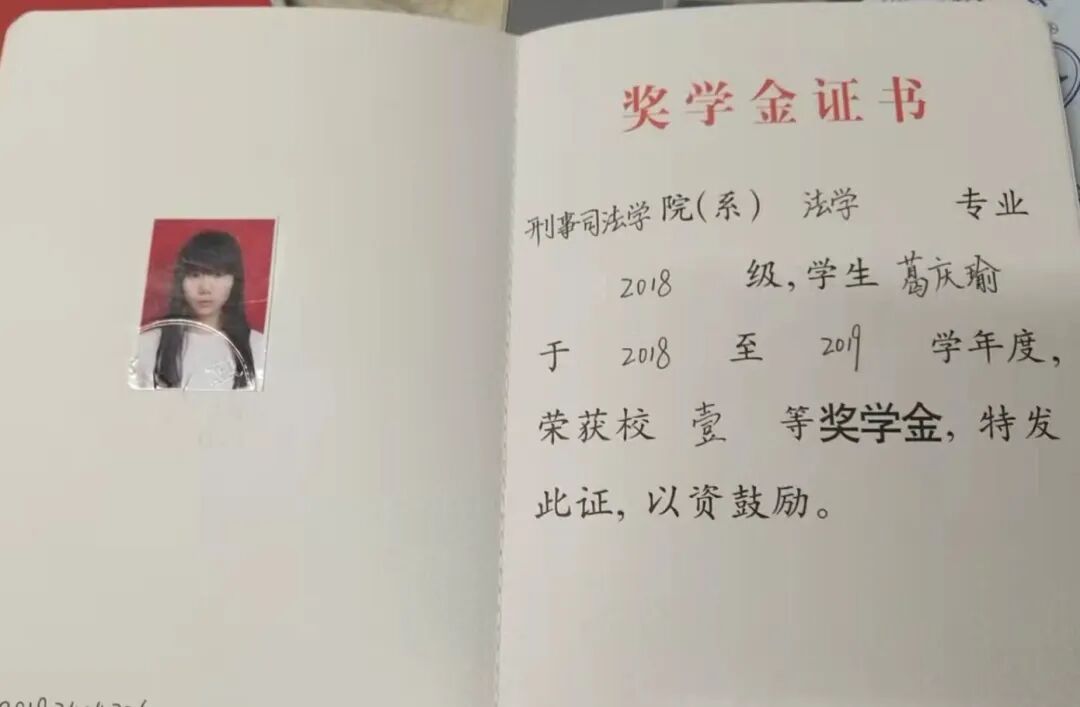 奖学金证书
刑事司法学院(系) 法学 专业
2018 级,学生 葛庆瑜
于 2018 至 2019 学年度,
荣获校 壹 等奖学金,特发
此证,以资鼓励。